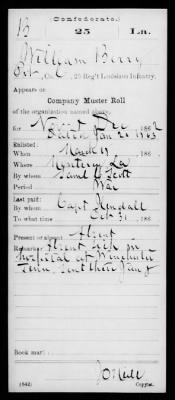 (Confederate.)
B 25 La.
William Berry
Co. , 25 Reg't Louisiana Infantry.
Appears on
Company Muster Roll
of the organization named above,
for Nov & Dec , 1862
dated Jan 21 1863
Enlisted:
When March 11 , 186
Where Monterey La
By whom Saml Scott
Period War
Last paid:
By whom Capt Kendall
To what time Oct 31 , 186
Present or absent Absent
Remarks: Absent sick in
hospital at Winchester
Tenn. Sent there
Book mark:
(642) Copyist.